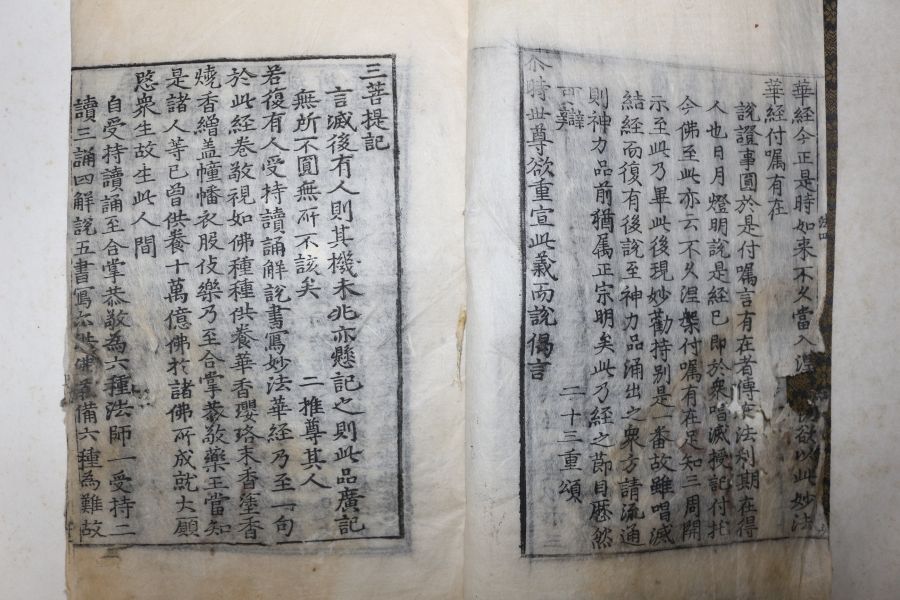 華經今正是時如來不久當入涅欲以此妙法
華經付囑有在
說證事圓於是付囑言有在者傳法別期在得
人也日月燈明說是經已即於衆唱滅授記付托
今佛至此亦云不久涅槃付囑有在足知三周開
示至此乃畢此後現妙勸持別是一番故雖唱滅
結經而復有後說至神力品涌出之衆方請流通
則神力品前猶属正宗明矣此乃經之節目歷然
可辯 二十三重頌
尒時世尊欲重宣此義而說偈言
三菩提記
言滅後有人則其機未兆亦懸記之則此品廣記
無所不圓無所不該矣 二推尊其人
若復有人受持讀誦解說書寫妙法華經乃至一句
於此經卷敬視如佛種種供養華香瓔珞末香塗香
燒香繒盖幢幡衣服伎樂乃至合掌恭敬藥王當知
是諸人等已曾供養十萬億佛於諸佛所成就大願
愍衆生故生此人間
自受持讀誦至合掌恭敬為六種法師一受持二
讀三誦四解說五書寫六供佛備六種為難故